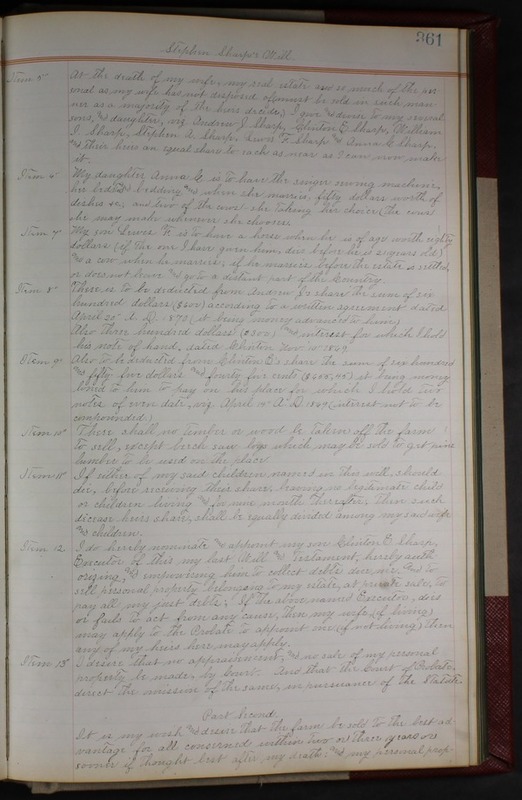 361
Stephen Sharp's Will
Item 5" At the death of my wife, my real estate and so much of the per
sonal as my wife has not disposed of must be sold in such man
ner as a majority of the heirs decide, I give and devise to my several
sons, and daughter, viz Andrew J. Sharp, Clinton E. Sharp, William
I. Sharp, Stephen A. Sharp, Lewis F. Sharp and Anna C. Sharp,
and their heirs an equal share to each as near as I can now make
it.
Item 6" My daughter Anna C. is to have the singer sewing machine,
her beds and bedding, and when she marries, fifty dollars worth of
dishes &c, and two of the cows she taking her choice (The cows
she may make whenever she chooses
Item 7" My son Lewis F. is to have a horse when he is of age worth eighty
dollars (if the one I have given him, dies before he is 21 years old)
and a cow when he marries, if he marries before the estate is settled,
or does not leave and go to a distant part of the Country.
Item 8" There is to be deducted from Andrew J's share the sum of six
hundred dollars ($600) according to a written agreement dated
April 20" A.D. 1878 (it being money advanced to him)
Also Three hundred dollars ($300) and interest for which I hold
his note of hand, dated Clinton Nov. 10" 1869.
Item 9" Also to be deducted from Clinton E's share the sum of six hundred
and fifty five dollars and forty five cents it being money
loaned to him to pay on his place for which I hold two
notes of even date, viz April 1" A.D. (interest not to be
compounded.)
Item 10" There shall no timber or wood be taken off the farm
to sell, except beech saw logs which may be sold to get pine
lumber to be used on the place.
Item 11" If either of my said children named in this will should
die, before receiving their share, leaving no legitimate child
or children living and for nine months thereafter, then such
deceased heirs share, shall be equally divided among my said wife
and children.
Item 12 I do hereby nominate and appoint my son Clinton E. Sharp,
Executor of this my last Will and Testament, hereby auth
orizing, and empowering him to collect debts due me, and to
sell personal property belonging to my estate, at private sale, to
pay all my just debts. If the above named Executor, dies
or fails to act from any cause, then my wife (if living)
may apply to the Probate to appoint one (if not living) then
any of my heirs here may apply.
Item 13" I desire that no appraisement, and no sale of my personal
property be made, by Court. And that the Court of Probate,
direct the omission of the same, in pursuance of the Statute
Part Second.
It is my wish and desire that the farm be sold to the best ad
vantage for all concerned within two or three years or
sooner if thought best after my death: and my personal prop-